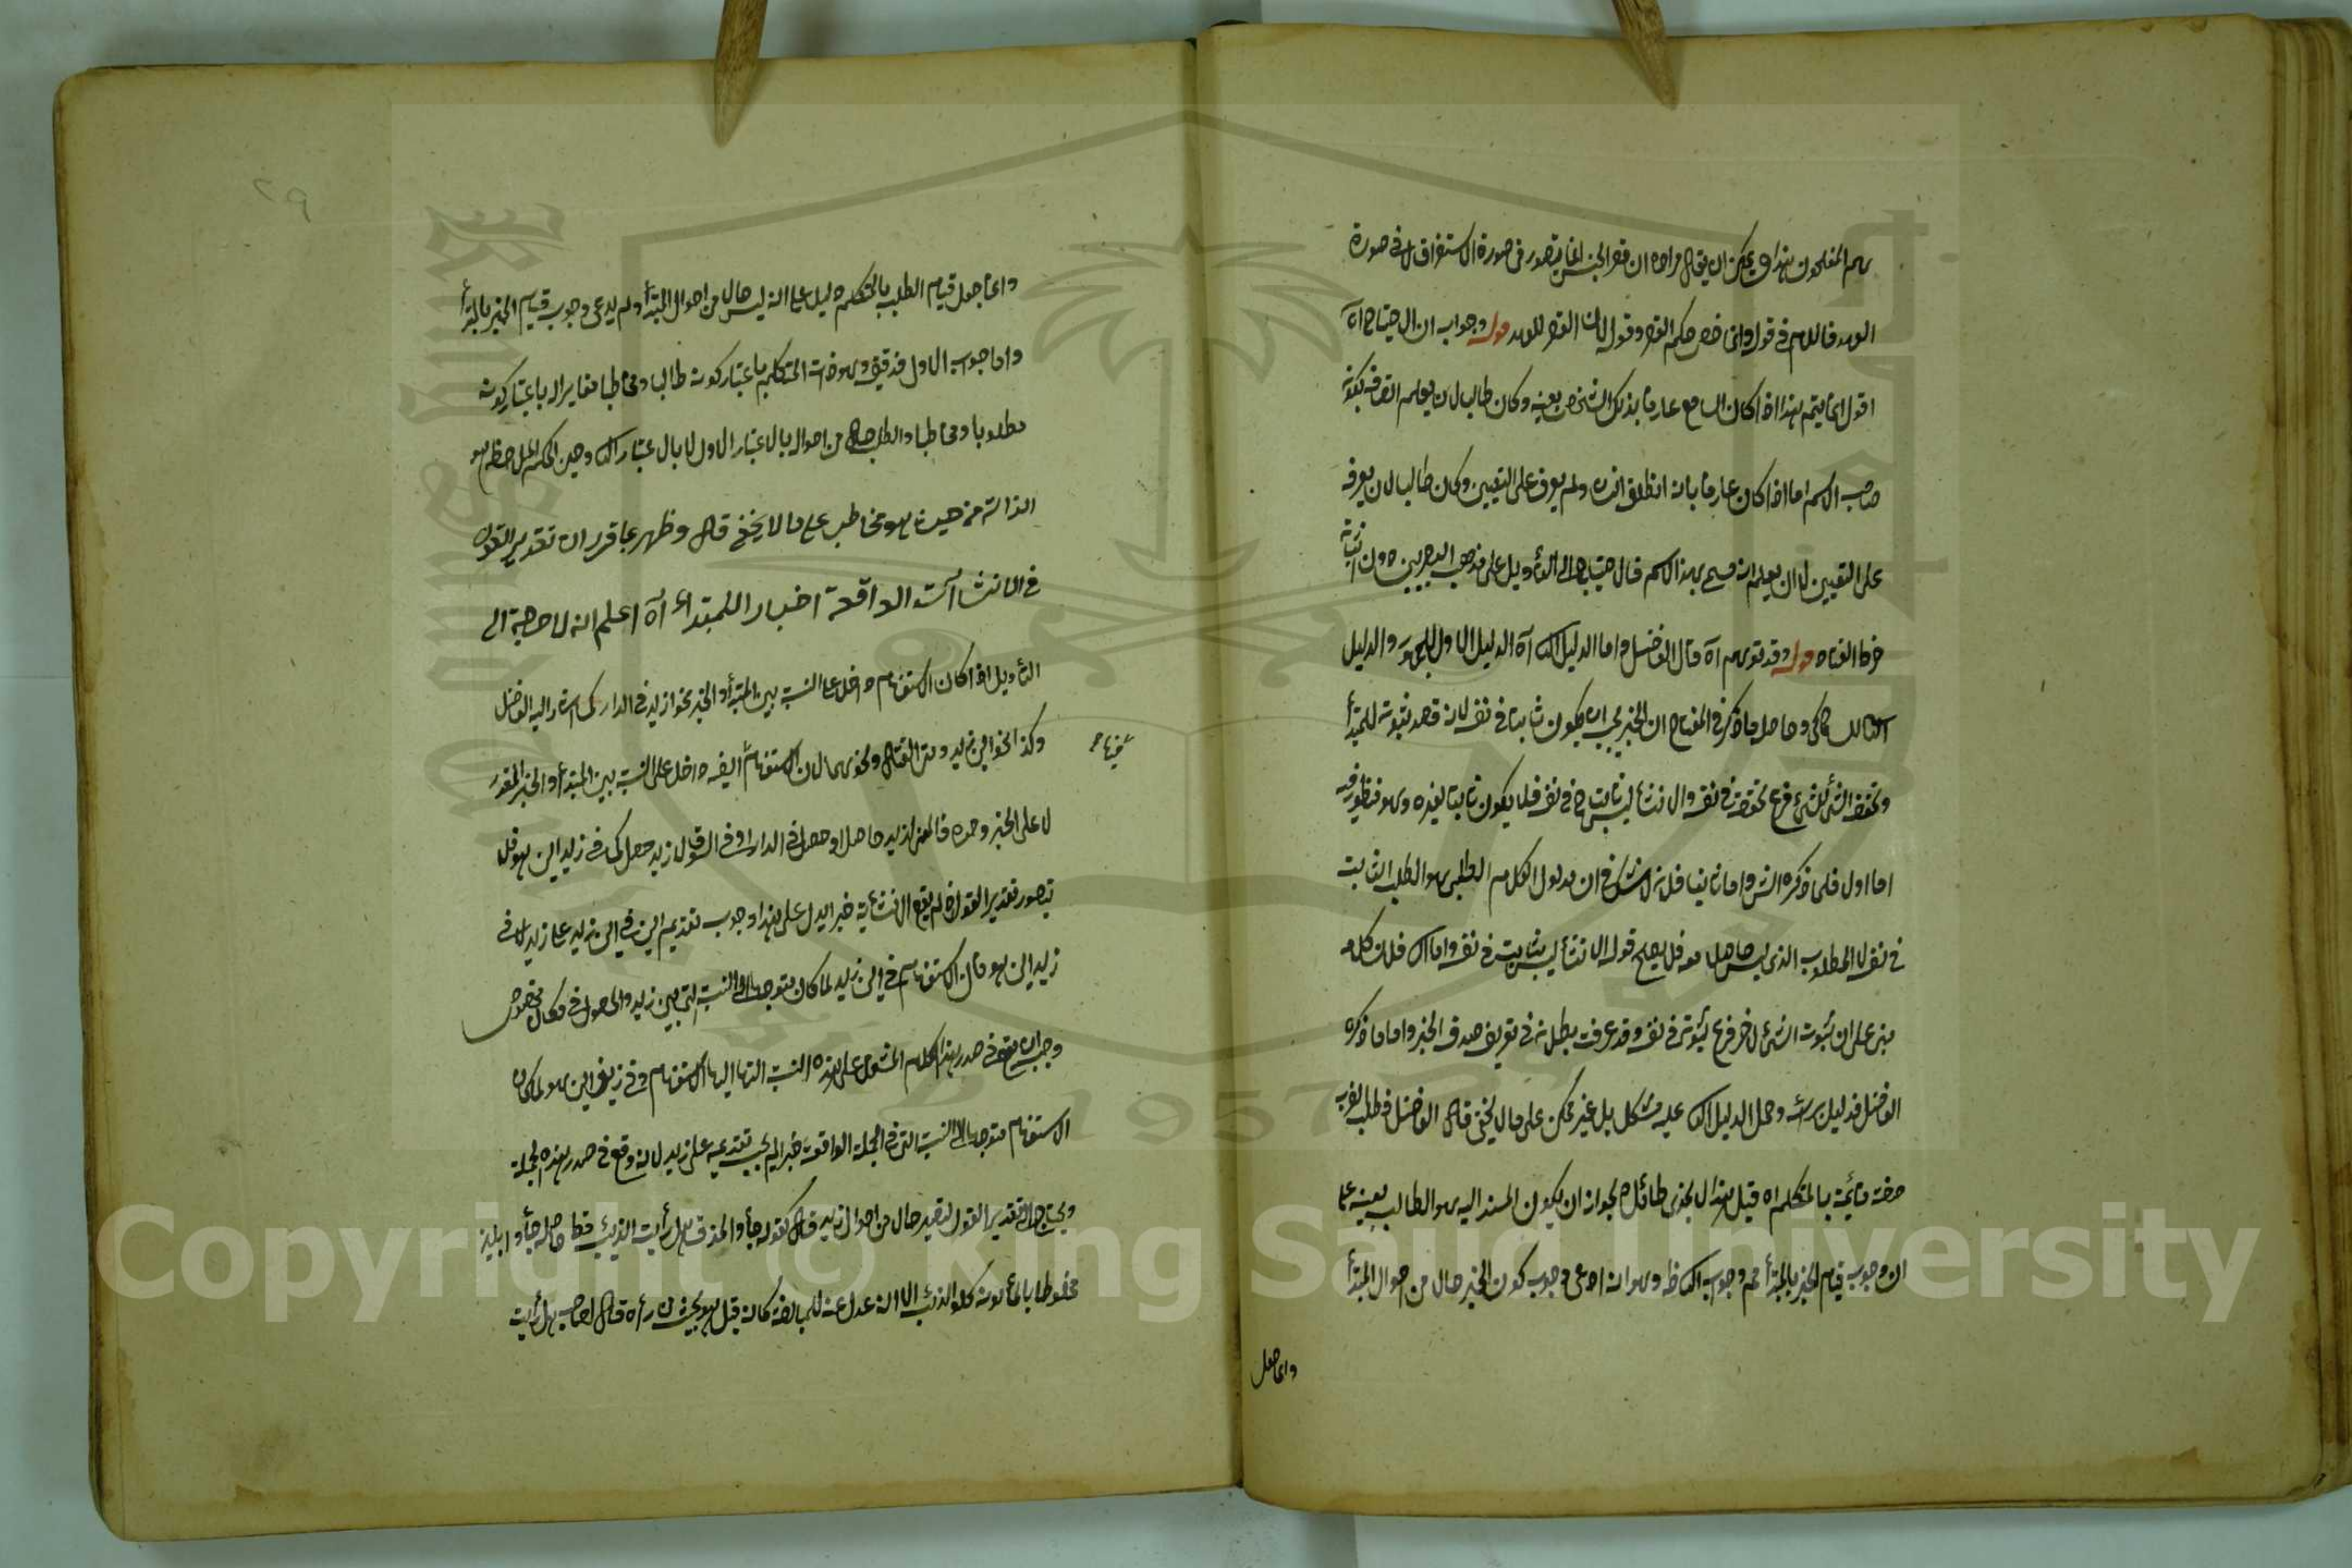 هم المفلحون هذا ويمكن ان يقال مراده ان قصر الجنس انما يتصور في صورة الاستغراق لا في صورة
العهد فاللام في قوله وانما خص حكم القصر وقوله لان القصر للعهد قوله وجواب ان الاحتياج اه
اقول انما يتم هذا اذا كان السامع عارفا بذلك الشخص بعينه وكان طالبا لان يعلم اتصافه بكونه
صاحب الاسم اما اذا كان عارفا بانه انطلق انسان ولم يعرف على التعيين وكان طالبا لان يعرفه
على التعيين لا ان يعلم انه مسمى بهذا الاسم فلا احتياج الى التأويل على مذهب البصريين دون اثباته
خرط القتاد قوله وقد توهم اه قال الفاضل واما الدليل الثاني اه الدليل الاول للجمهور والدليل
الثاني للسكاكي وحاصل ما ذكر في المفتاح ان الخبر يجب ان يكون ثابتا في نفسه لانه قصد ثبوته للمبتدأ
وتحقق الشئ للشئ فرع تحققه في نفسه والانشاء ليس بثابت في نفسه فلا يكون ثابتا لغيره وهو منظور فيه
اما اولا فلما ذكره الش واما ثانيا فلانه لا شك في ان مدلول الكلام الطلبي هو الطلب الثابت
في نفسه لا المطلوب الذي ليس حاصلا معه فلا يصح قوله الانشاء ليس بثابت في نفسه واما الثالث فلان كلامه
مبنى على ان ثبوت الشئ لاخر فرع ثبوته في نفسه وقد عرفت بطلانه في تعريف صدق الخبر واما ما ذكره
الفاضل فدليل برأسه وحمل الدليل الثاني عليه مشكل بل غير ممكن على ما لا يخفى قال الفاضل فطلب الضرب
صفة قائمة بالمتكلم اه قيل هذا لا يجدى طائلا لجواز ان يكون المسند اليه هو الطالب بعينه على
ان وجوب قيام الخبر بالمبتدأ مم وجوابه الثاني ظ وهو انه ادعى وجوب كون الخبر حالا من احوال المبتدأ
وانما جعل
وانما جعل قيام الطلب بالمتكلم دليلا على انه ليس حالا من احوال المبتدأ ولم يدعى وجوب قيام الخبر بالمبتدأ
واما جواب الاول فدقيق وهو ان ذات المتكلم باعتبار كونه طالبا ومخاطبا مغاير له باعتبار كونه
مطلوبا ومخاطبا والطلب حال من احواله بالاعتبار الاول لا بالاعتبار الثاني وحين الحكم الملاحظ هو
الذات من حيث هو مخاطب على ما لا يخفى قال وظهر بما قررنا ان تقدير القول
في الانشاآت الواقعة اخبارا للمبتداء اه اعلم انه لا حاجة الى
التأويل اذا كان الاستفهام داخلا على النسبة بين المبتدأ والخبر نحو ازيد في الدار كما اشار اليه الفاضل
وكذا نحو اين زيد ومتى القتال ونحوهما لان الاستفهام ايضا داخل على النسبة بين المبتدأ والخبر المقدر
لا على الخبر وحده فالمعنى ازيد حاصل او حصل في الدار او في السوق لا زيد حصل كما في زيد اين هو فلا
يتصور تقدير القول اذ لم يقع الانشائية خبرا يدل على هذا وجوب تقديم اين في اين زيد على زيد لا في
زيد اين هو فان الاستفهام في اين زيد لما كان متوجها الى النسبة التي بين زيد والحصول في مكان مخصوص
وجب ان يقع في صدر هذا الكلام المشتمل على هذه النسبة التي اليها الاستفهام وفي زيد اين هو لما كان
الاستفهام متوجها الى النسبة التي في الجملة الواقعة خبرا لم يجب تقديمه على زيد لانه وقع في صدر هذه الجملة
ويحتاج الى تقدير القول لتصير حالا من احوال زيد قال كقوله جاؤا بمذق هل رأيت الذئب قط حاصله جاؤا بلبن
مخلوط بالماء لونه كلون الذئب الا انه عدل عنه للمبالغة كانه قيل هو بحيث من رأه قال لصاحبه هل رأيت